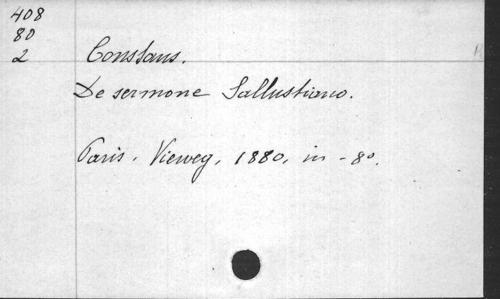 408
80
2
Constans.
De sermone Sallustiano.
Paris, Vieweg, 1880, in-8o.